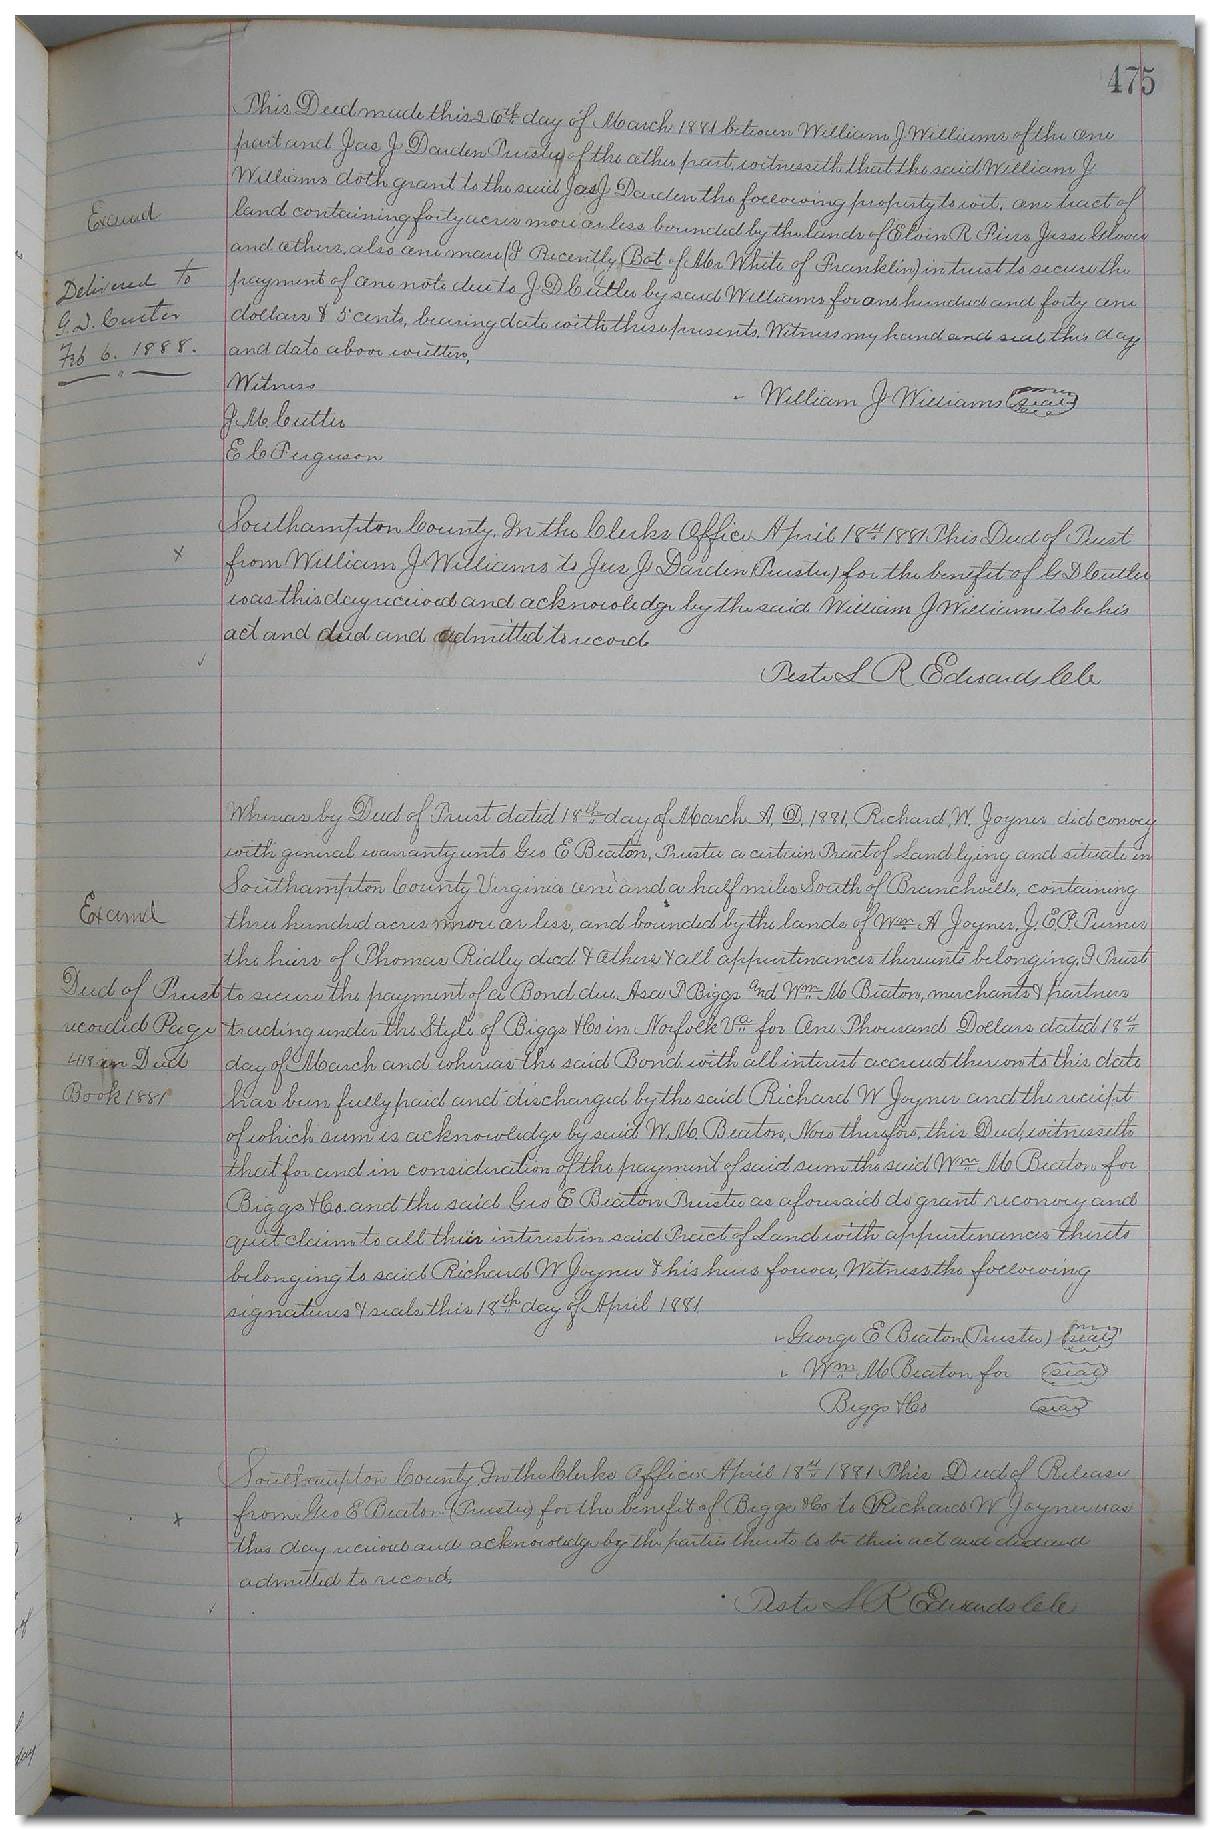 475
This Deed made this 26th day of March 1881 between William J Williams of the one
part and Jas J Darden Trustee of the other part, witnesseth that the said William J
Williams doth grant to the said Jas J Darden the following property to wit, one tract of
land containing forty acres more or less bounded by the lands of Elvin R Piers Jesse Glover
and others, also one mare (I Recently Bot of Mr White of Franklin) in trust to secure the
payment of one note due to J. D Cutler by said Williams for one hundred and forty one
dollars & 5 cents, bearing date with these presents. Witness my hand and seal this day
and date above written,
William J Williams seal
Witness
J. M. Cutler
E C Ferguson
Examd
Delivered to
G. D. Cutler
Feb 6. 1888.
Southampton County, In the Clerks Office April 18th 1881 This Deed of Trust
from William J Williams to Jas J Darden (Trustee) for the benefit of G D Cutler
was this day received and acknowledge by the said William J Williams to be his
act and deed and admitted to record
Teste L R Edwards Clk
Whereas by Deed of Trust dated 18th day of March A. D. 1881, Richard, W. Joyner did convey
with general warranty unto Geo E Beaton, Trustee a certain Tract of Land lying and situate in
Southampton County Virginia one and a half miles South of Branchville, containing
three hundred acres more or less, and bounded by the lands of Wm A Joyner, J. E. P. Turner
the heirs of Thomas Ridley decd & others & all appurtenances thereunto belonging, I Trust
to secure the payment of a Bond due Asa T Biggs and Wm M Beaton, merchants & partners
trading under the Style of Biggs & Co in Norfolk Va for One Thousand Dollars dated 18th
day of March and whereas the said Bond with all interest accrued thereon to this date
has been fully paid and discharged by the said Richard W Joyner and the receipt
of which sum is acknowledge by said W. M. Beaton, Now therefore, this Deed, witnesseth
that for and in consideration of the payment of said sum the said Wm M Beaton for
Biggs & Co. and the said Geo E Beaton Trustee as aforesaid do grant reconvey and
quit claim to all their interest in said Tract of Land with appurtenances thereto
belonging to said Richard W Joyner & his heirs forever, Witness the following
signatures & seals this 18th day of April 1881
Examd
Deed of Trust
recorded Page
in Deed
Book 1881
George E Beaton (Trustee) seal
Wm M Beaton for seal
Biggs & Co seal
Southampton County, In the Clerks Office April 18th 1881 This Deed of Release
from Geo E Beaton (Trustee) for the benefit of Biggs & Co to Richard W Joyner was
this day received and acknowledge by the parties thereto to be their act and deed and
admitted to record,
Teste L R Edwards Clk